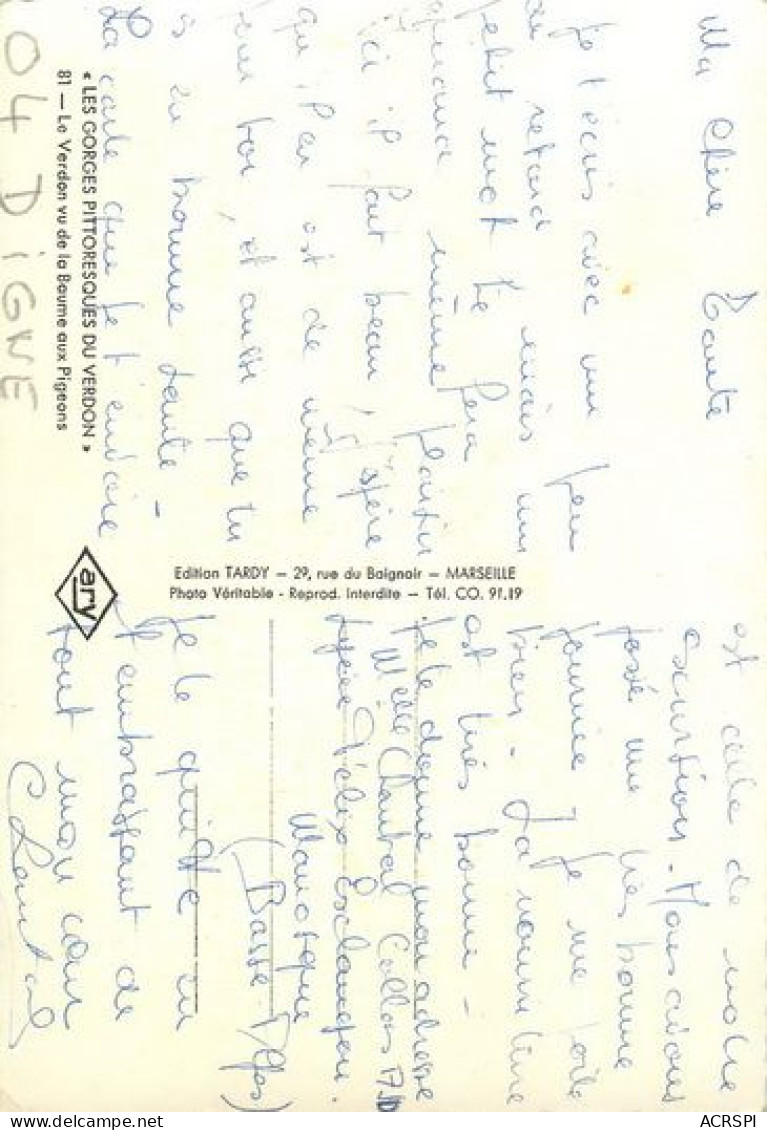 Ma Chère Tante
je t'écris avec un peu
de retard mais un
petit mot te fera
quand même plaisir
ici il fait beau, j'éspère
qu'il en est de même
pour toi, et aussi que tu
es en bonne santé -
La carte que je t'envoie
est celle de notre
excursion. Nous avons
passé une très bonne
journée, je me porte
bien. La nourriture
est très bonne -
Je te donne mon adresse
Melle Chantal
Lycée Félix Esclangon.
Manosque
(Basse-Alpes)
Je te quitte en
t'embrassant de
tout mon cœur
Chantal
« LES GORGES PITTORESQUES DU VERDON »
81 — Le Verdon vu de la Baume aux Pigeons
04 DIGNE
Edition TARDY — 29, rue du Baignoir — MARSEILLE
Photo Véritable - Reprod. Interdite — Tél. CO. 91.19
ary
ACRSPI